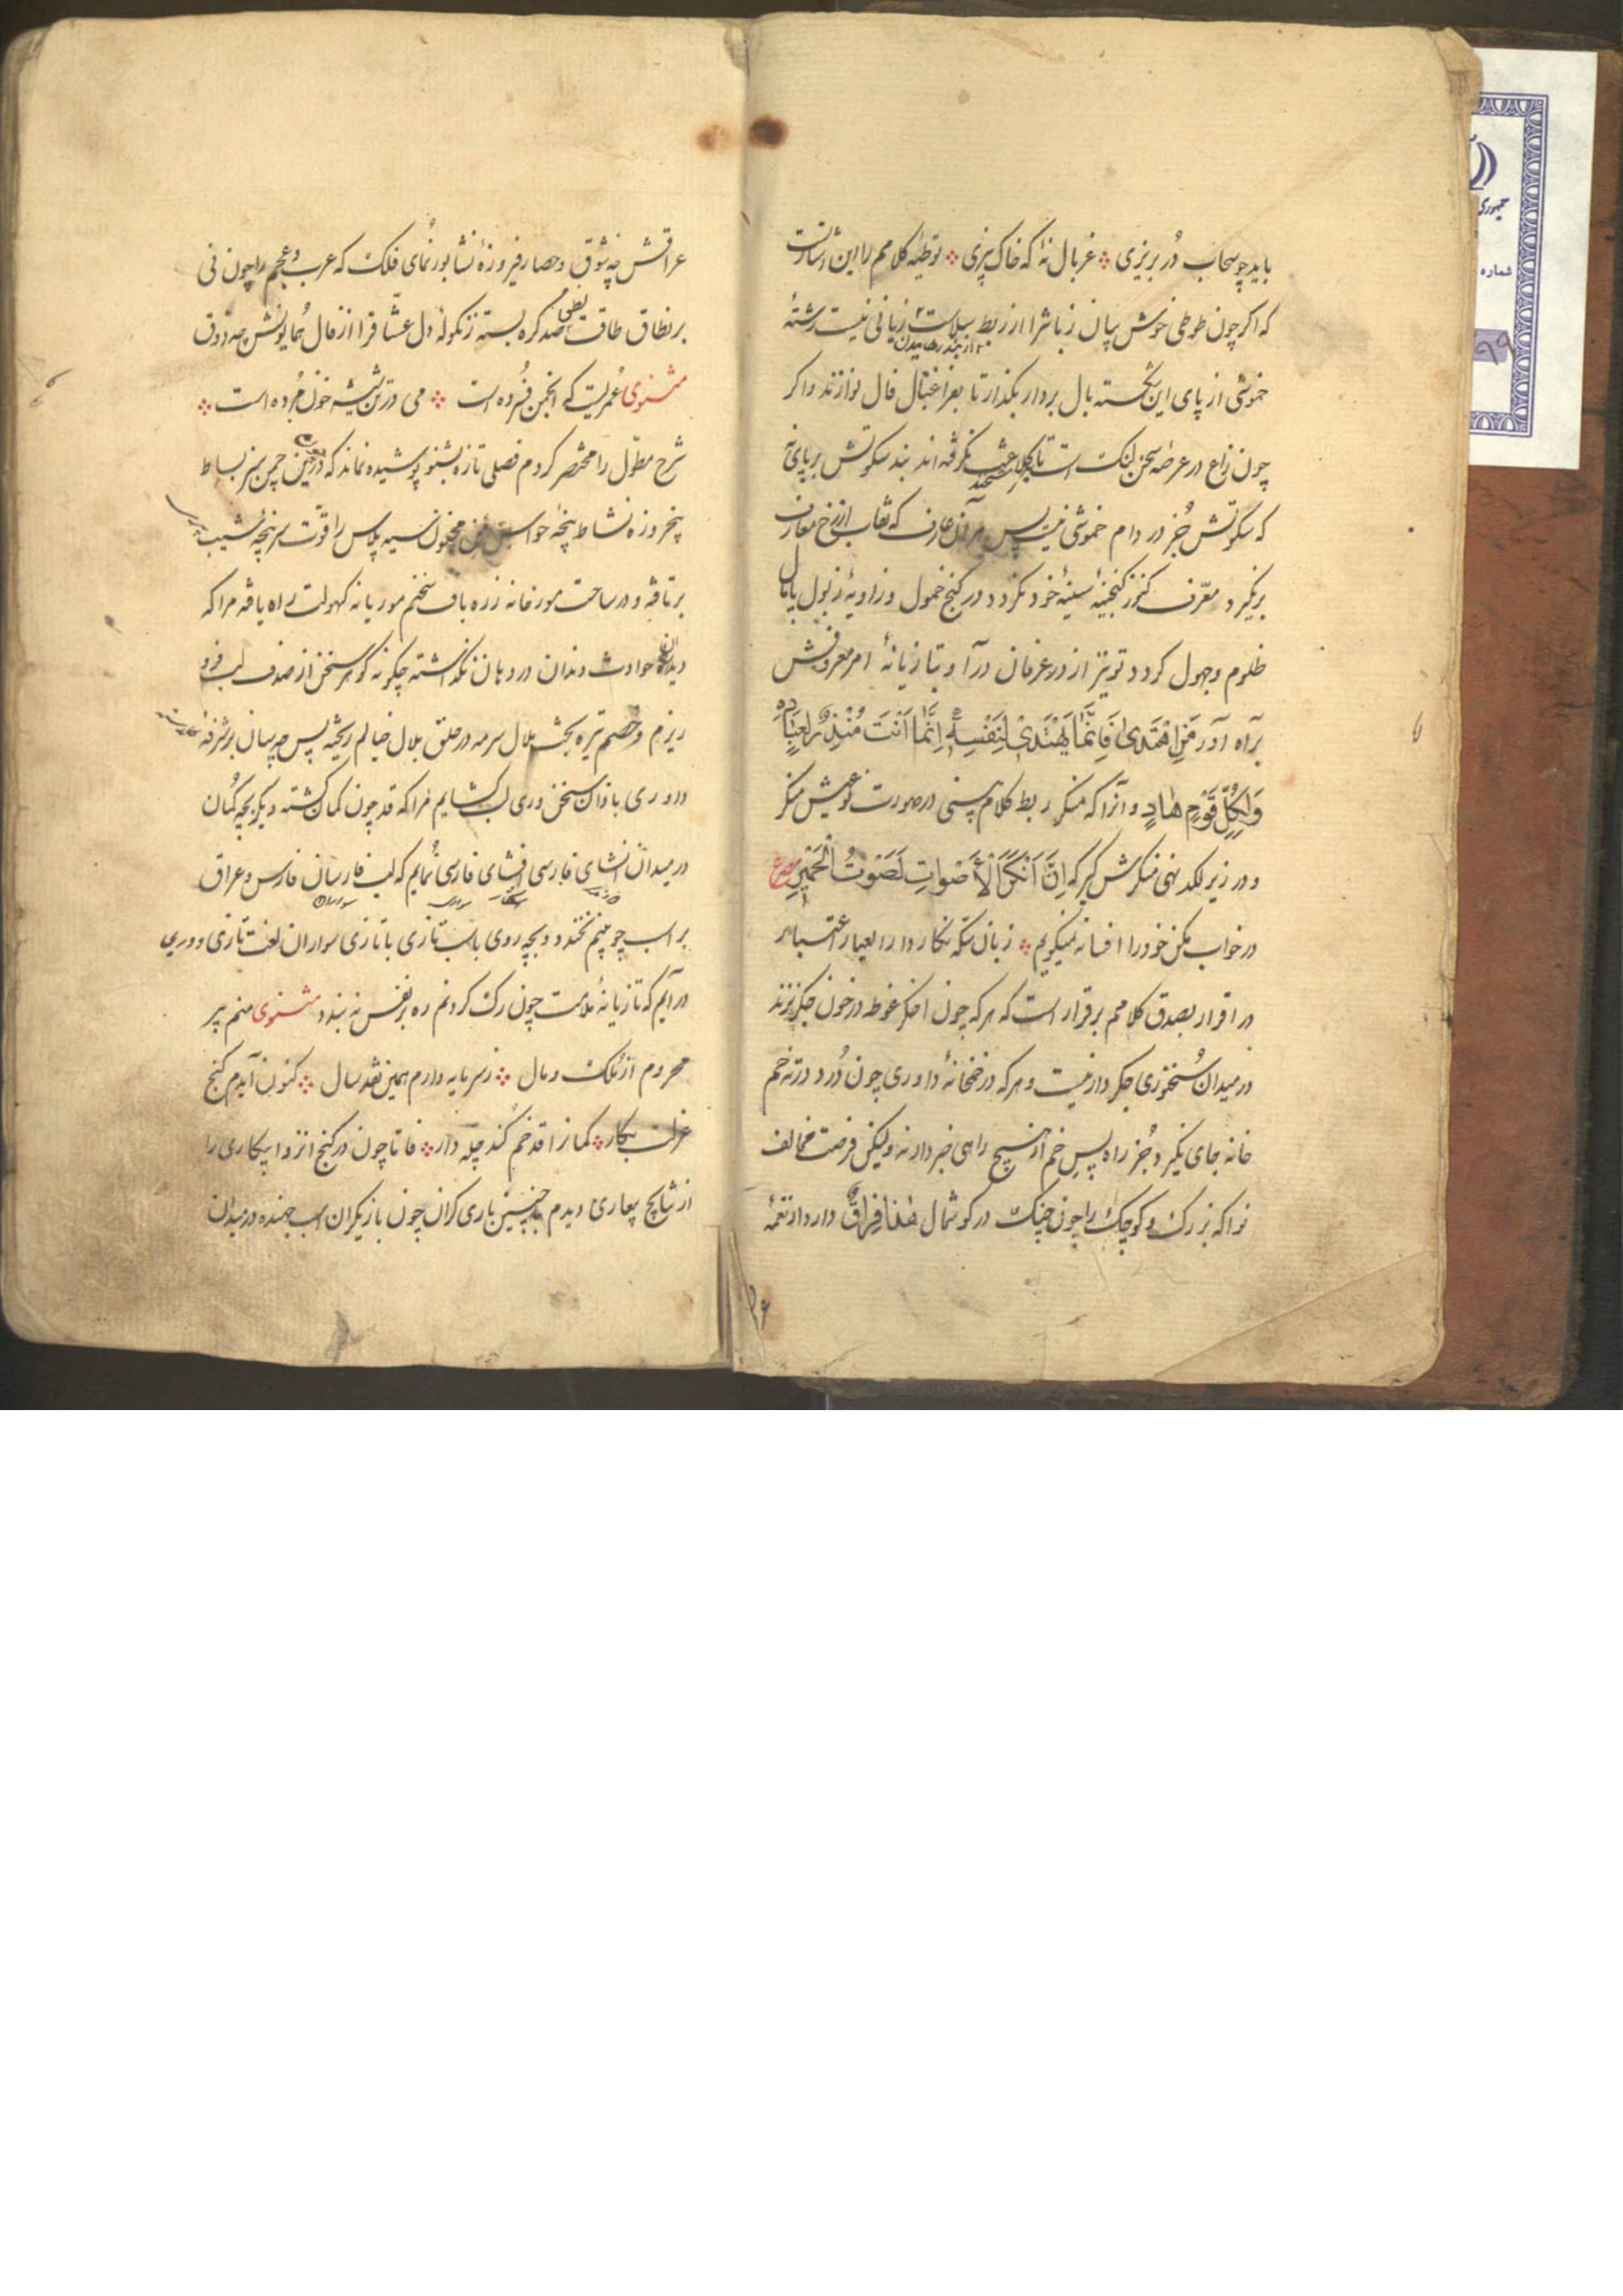 باید چو سحاب دُر بریزی ∴ غربال نهٔ که خاک بیزی ∴ توطیهٔ کلامم را این اشارتست
که اکر چون طوطی خوش بیان زبانش را از ربط سلاست زیانی نیست رشتهٔ
از بند رهانیدن
خموشی از پای این شکسته بال بردار بکذار تا بفراغبال فال نوازند واکر
چون زاغ در عرصهٔ سخن لنکست تا کلاغش نکرفته‌اند بند سکوتش بر پای نه
که سکوتش جُز در دام خموشی نیست پس هر آن عارف که نقاب از رخ معارف
برنکیرد و معرّف کنوز کنجینهٔ سینهٔ خود نکردد در کنج خمول و زاویهٔ زبول پامال
ظلوم و جهول کردد تو نیز از در عرفان درآ و بتازیانهٔ امر معروفش
براه آور فَمَنِ اهْتَدىٰ فَاِنَّمَا يَهْتَدىٖ لِنَفْسِهٖ اِنَّمَا اَنْتَ مُنْذِرٌ لِعِبَادِهِ
وَلِكُلِّ قَوْمٍ هَادٍ و آنرا که منکر ربط کلام بینی در صورت خویش منکر
و در زیر لکد نهی منکرش کیر که اِنَّ اَنْكَرَ الْاَصْوَاتِ لَصَوْتُ الْحَمِيرِ مصرع
در خواب مکن خود را افسانه نمیکویم ∴ زبان سکّه نکار دار را بعیار اعتبار
در اقرار بصدق کلامم برقرار است که هر که چون اخکر غوطه در خون جکر نزند
در میدان سُخنوری جکر دار نیست و هر که در خمخانهٔ داوری چون دُرد در ته خم
خانه جای نکیرد جُز راه پس خم از هیچ راهی خبر دار نه ولیکن فرصت مخالف
نوا که بزرک و کوچک را چون چنک در کوشمال هٰذَا فِرَاقٌ دارد از نغمهٔ
عراقش چه شوق و حصار فیروزهٔ نشابور نمای فلک که عرب و عجم را چون نی
بر نطاق طاقت صد کره بسته ز زنکولهٔ دل عشّاق را از فال هُمایونش چه ذوق
مثنوی عُمریست که انجمن فسُرده است ∴ می در تن شیشه خون مُرده است ∴
شرح مطوّل را مختصر کردم فصلی تازه بشنو پوشیده نماند که درین چمن سبز بساط
پنجروزه نشاط پنجهٔ حواس من مخذول سیه پلاس را قوّت سرپنجهٔ شیب
برتافته و در ساحت مورخانه زره باف تنم موریانه کهولت راه یافته مرا که
دیدان حوادث دندان در دهان نکذاشته چکونه کوهر سخن از صدف لب فرو
ریزم و خصم تیره بچشم هلال سرمه در حلق بلال خیالم ریخته پس چه سان بر شرفهٔ
داوری باذان سخن وری لب کشایم مرا که قد چون کمان کشته دیکر بچه کُمان
در میدان انشای فارسی افشای فارسی نُمایم که لب فارسان فارس و عراق
سواری
سواران
بر اسب چوبینم نخندد و بچه روی با اسب تازی با تازی سواران لغت تازی و دری
درآیم که تازیانهٔ ملامت چون رک کردنم ره بر نفس نه بندد مثنوی منم پیر
محروم از مُلک و مال ∴ ز سرمایه دارم همین نقد سال ∴ کنون آیدم کنج
عزلت بکار ∴ کمانرا قد خم کند چلّه دار ∴ فاما چون در کنج انزوا بیکاری را
از نتایج بیعاری دیدم بهمچنین باری کران چون بازیکران اسب جهنده در میدان
۲۶
جمهوری
شماره
۹۹